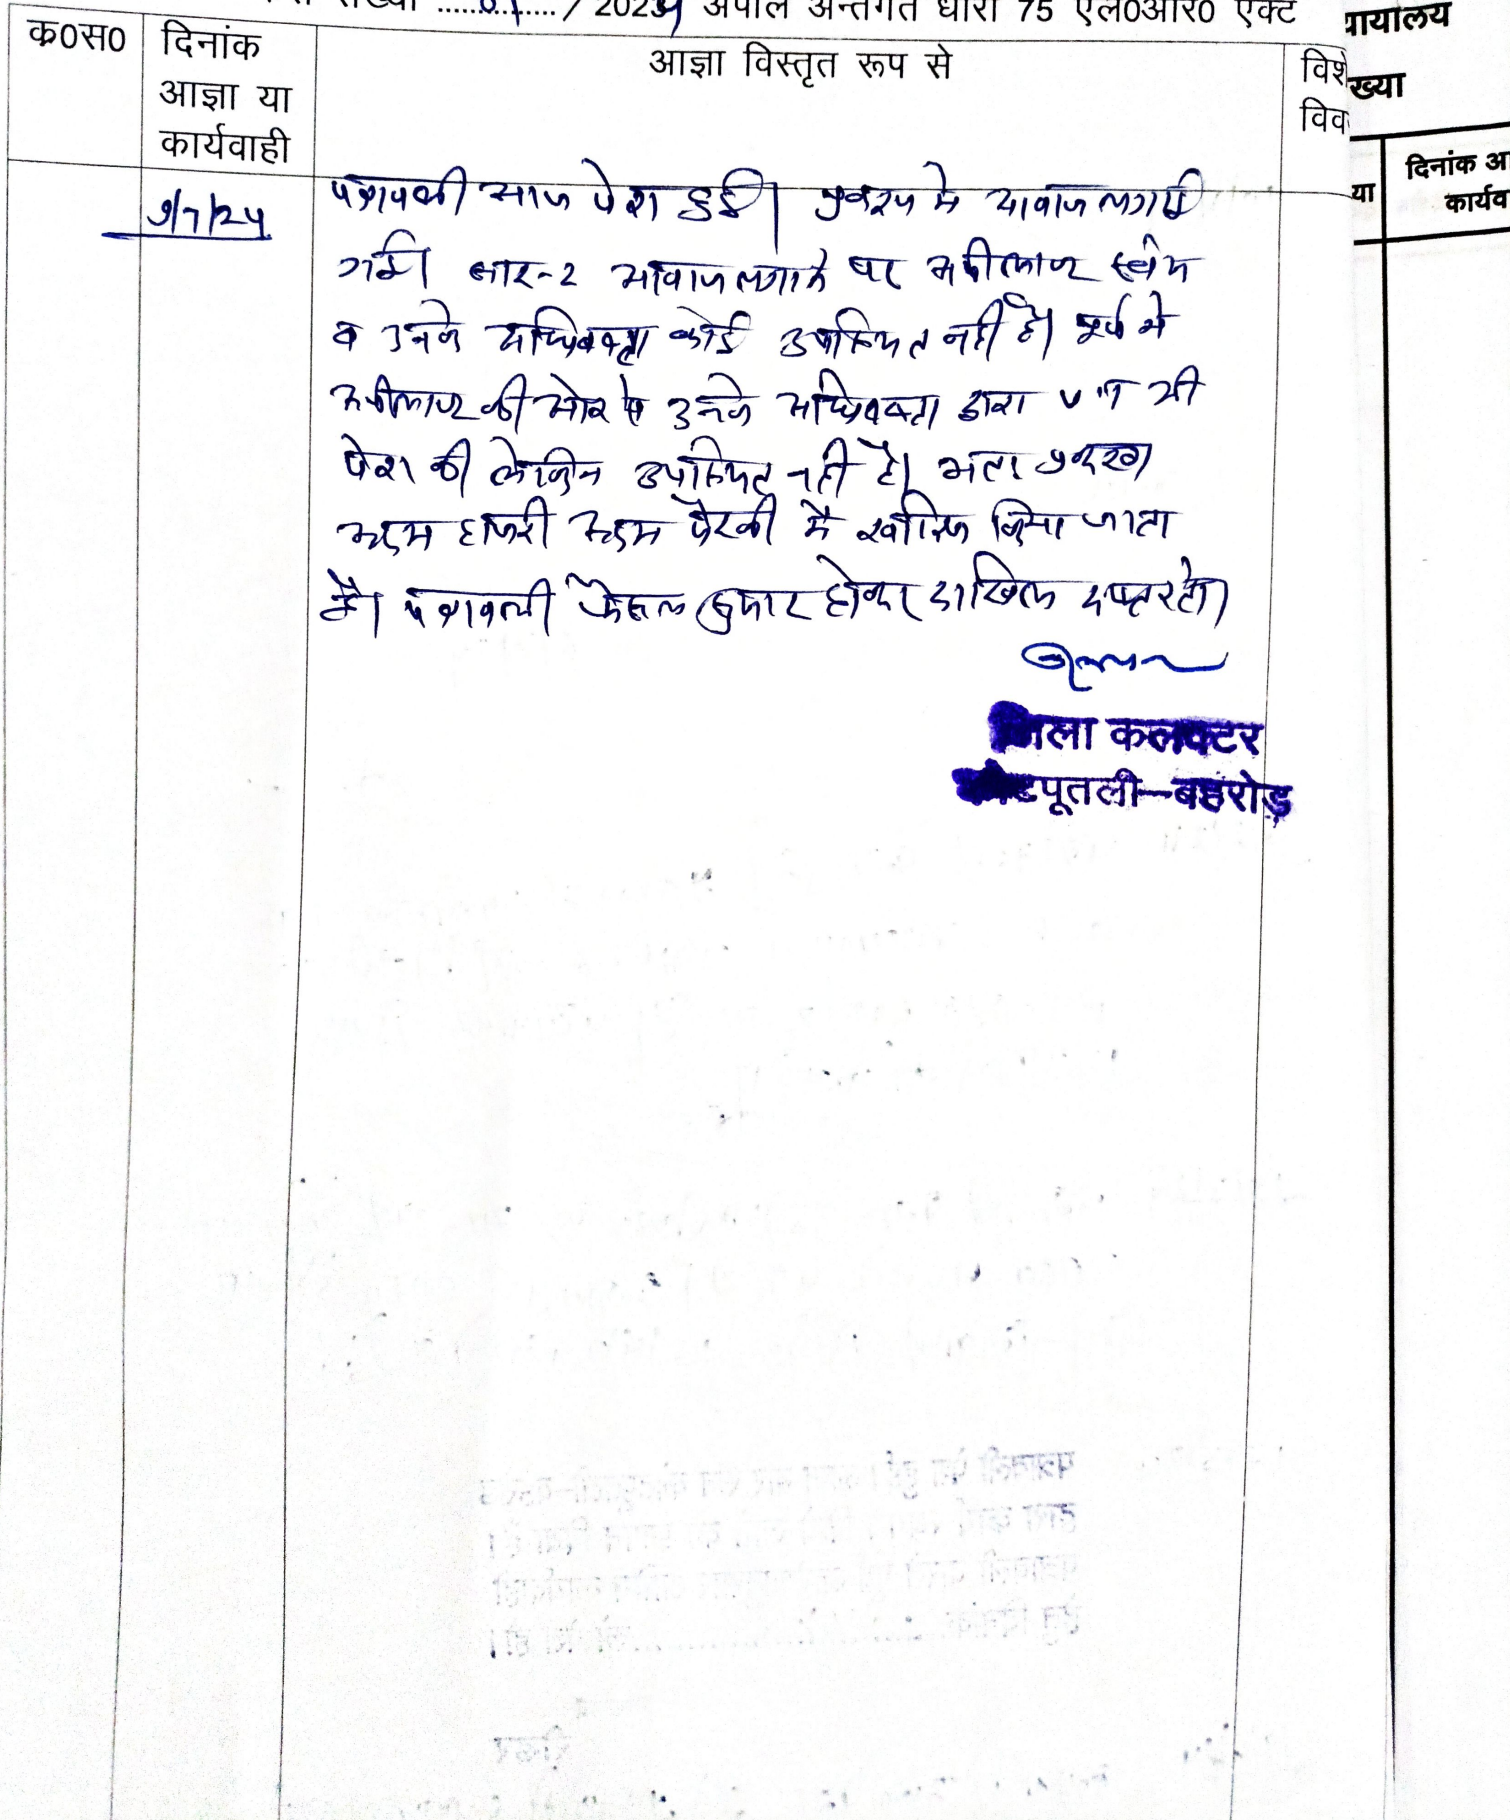 संख्या ......01...... / 2024 अपील अन्तर्गत धारा 75 एल0आर0 एक्ट
क0स0
दिनांक
आज्ञा या
कार्यवाही
आज्ञा विस्तृत रूप से
विशे
विव
9/7/24
पत्रावली आज पेश हुई। प्रकरण मे आवाज लगायी
गई। बार-2 आवाज लगाने पर अपीलान्ट स्वंय
व उनके अधिवक्ता कोई उपस्थित नहीं है। पूर्व मे
अपीलान्ट की ओर से उनके अधिवक्ता द्वारा भी
पेश की लेकिन उपस्थित नही है। अतः प्रकरण
अदम हाजरी अदम पैरवी मे खारिज किया जाता
है। पत्रावली फैसल शुमार होकर दाखिल दफ्तर हो।
जिला कलक्टर
कोटपूतली—बहरोड़
न्यायालय
ख्या
या
दिनांक आ
कार्यव